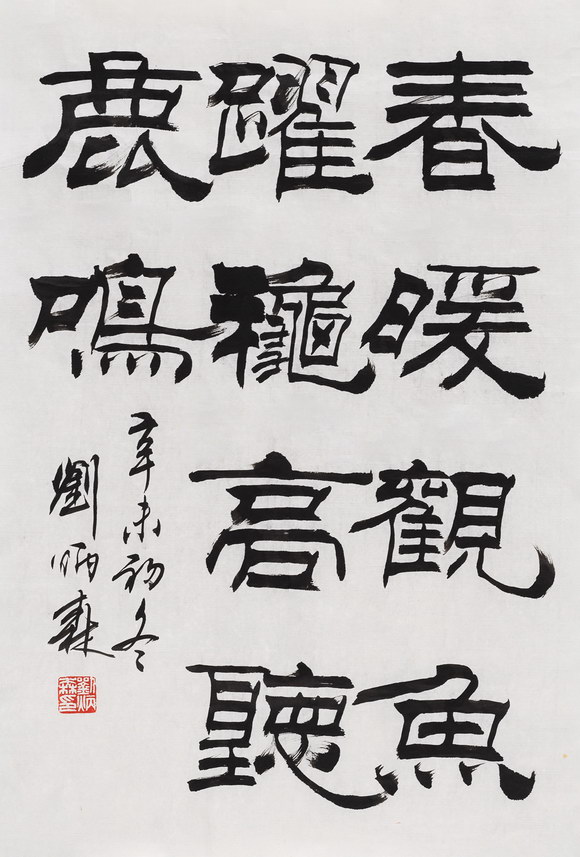 春暖觀魚
躍龝高聽
鹿鳴
辛未初冬
劉炳森
劉炳森印